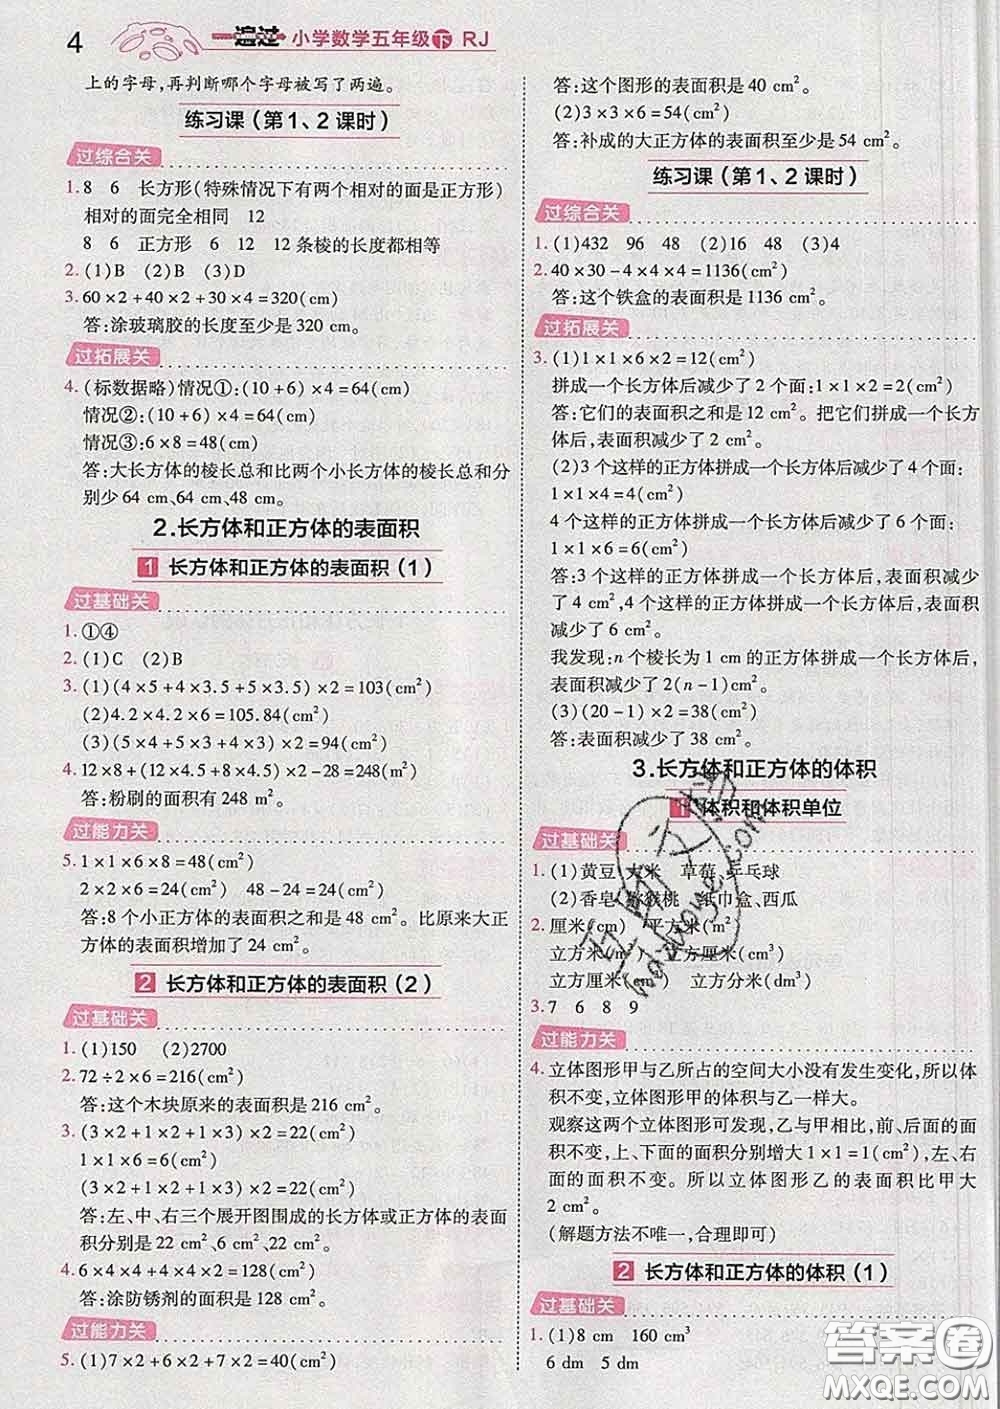 4
一遍过 小学数学五年级下 RJ
上的字母,再判断哪个字母被写了两遍。
练习课(第1、2课时)
过综合关
1. 8 6 长方形(特殊情况下有两个相对的面是正方形)
相对的面完全相同 12
8 6 正方形 6 12 12条棱的长度都相等
2. (1)B (2)B (3)D
3. 60×2+40×2+30×4=320(cm)
答:涂玻璃胶的长度至少是320 cm。
过拓展关
4. (标数据略)情况①:(10+6)×4=64(cm)
情况②:(10+6)×4=64(cm)
情况③:6×8=48(cm)
答:大长方体的棱长总和比两个小长方体的棱长总和分
别少64 cm、64 cm、48 cm。
2.长方体和正方体的表面积
1 长方体和正方体的表面积(1)
过基础关
1. ①④
2. (1)C (2)B
3. (1)(4×5+4×3.5+5×3.5)×2=103(cm²)
(2)4.2×4.2×6=105.84(cm²)
(3)(5×4+5×3+4×3)×2=94(cm²)
4. 12×8+(12×4.5+8×4.5)×2-28=248(m²)
答:粉刷的面积有248 m²。
过能力关
5. 1×1×6×8=48(cm²)
2×2×6=24(cm²) 48-24=24(cm²)
答:8个小正方体的表面积之和是48 cm²。比原来大正
方体的表面积增加了24 cm²。
2 长方体和正方体的表面积(2)
过基础关
1. (1)150 (2)2700
2. 72÷2×6=216(cm²)
答:这个木块原来的表面积是216 cm²。
3. (3×2+1×2+3×1)×2=22(cm²)
1×1×6=6(cm²)
(3×2+1×2+3×1)×2=22(cm²)
答:左、中、右三个展开图围成的长方体或正方体的表面
积分别是22 cm²、6 cm²、22 cm²。
4. 6×4×4+4×4×2=128(cm²)
答:涂防锈剂的面积是128 cm²。
过能力关
5. (1)7×2+6×2+7×2=40(cm²)
答:这个图形的表面积是40 cm²。
(2)3×3×6=54(cm²)
答:补成的大正方体的表面积至少是54 cm²。
练习课(第1、2课时)
过综合关
1. (1)432 96 48 (2)16 48 (3)4
2. 40×30-4×4×4=1136(cm²)
答:这个铁盒的表面积是1136 cm²。
过拓展关
3. (1)1×1×6×2=12(cm²)
拼成一个长方体后减少了2个面:1×1×2=2(cm²)
答:它们的表面积之和是12 cm²。把它们拼成一个长方
体后,表面积减少了2 cm²。
(2)3个这样的正方体拼成一个长方体后减少了4个面:
1×1×4=4(cm²)
4个这样的正方体拼成一个长方体后减少了6个面:
1×1×6=6(cm²)
答:3个这样的正方体拼成一个长方体后,表面积减少
了4 cm²,4个这样的正方体拼成一个长方体后,表面积
减少了6 cm²。
我发现:n个棱长为1 cm的正方体拼成一个长方体后,
表面积减少了2(n-1)cm²。
(3)(20-1)×2=38(cm²)
答:表面积减少了38 cm²。
3.长方体和正方体的体积
1 体积和体积单位
过基础关
1. (1)黄豆 大米 草莓 乒乓球
(2)香皂、猕猴桃 纸巾盒、西瓜
2. 厘米(cm) 平方米(m²)
立方米(m³) 立方厘米(cm³)
立方厘米(cm³) 立方分米(dm³)
3. 7 6 8 9
过能力关
4. 立体图形甲与乙所占的空间大小没有发生变化,所以体
积不变,立体图形甲的体积与乙一样大。
观察这两个立体图形可发现,乙与甲相比,前、后面的面
积不变,上、下面的面积分别增大1×1=1(cm²),左、右
面的面积不变。所以立体图形乙的表面积比甲大
2 cm²。
(解题方法不唯一,合理即可)
2 长方体和正方体的体积(1)
过基础关
1. (1)8 cm 160 cm³
6 dm 5 dm
答案圈
MXQE.COM